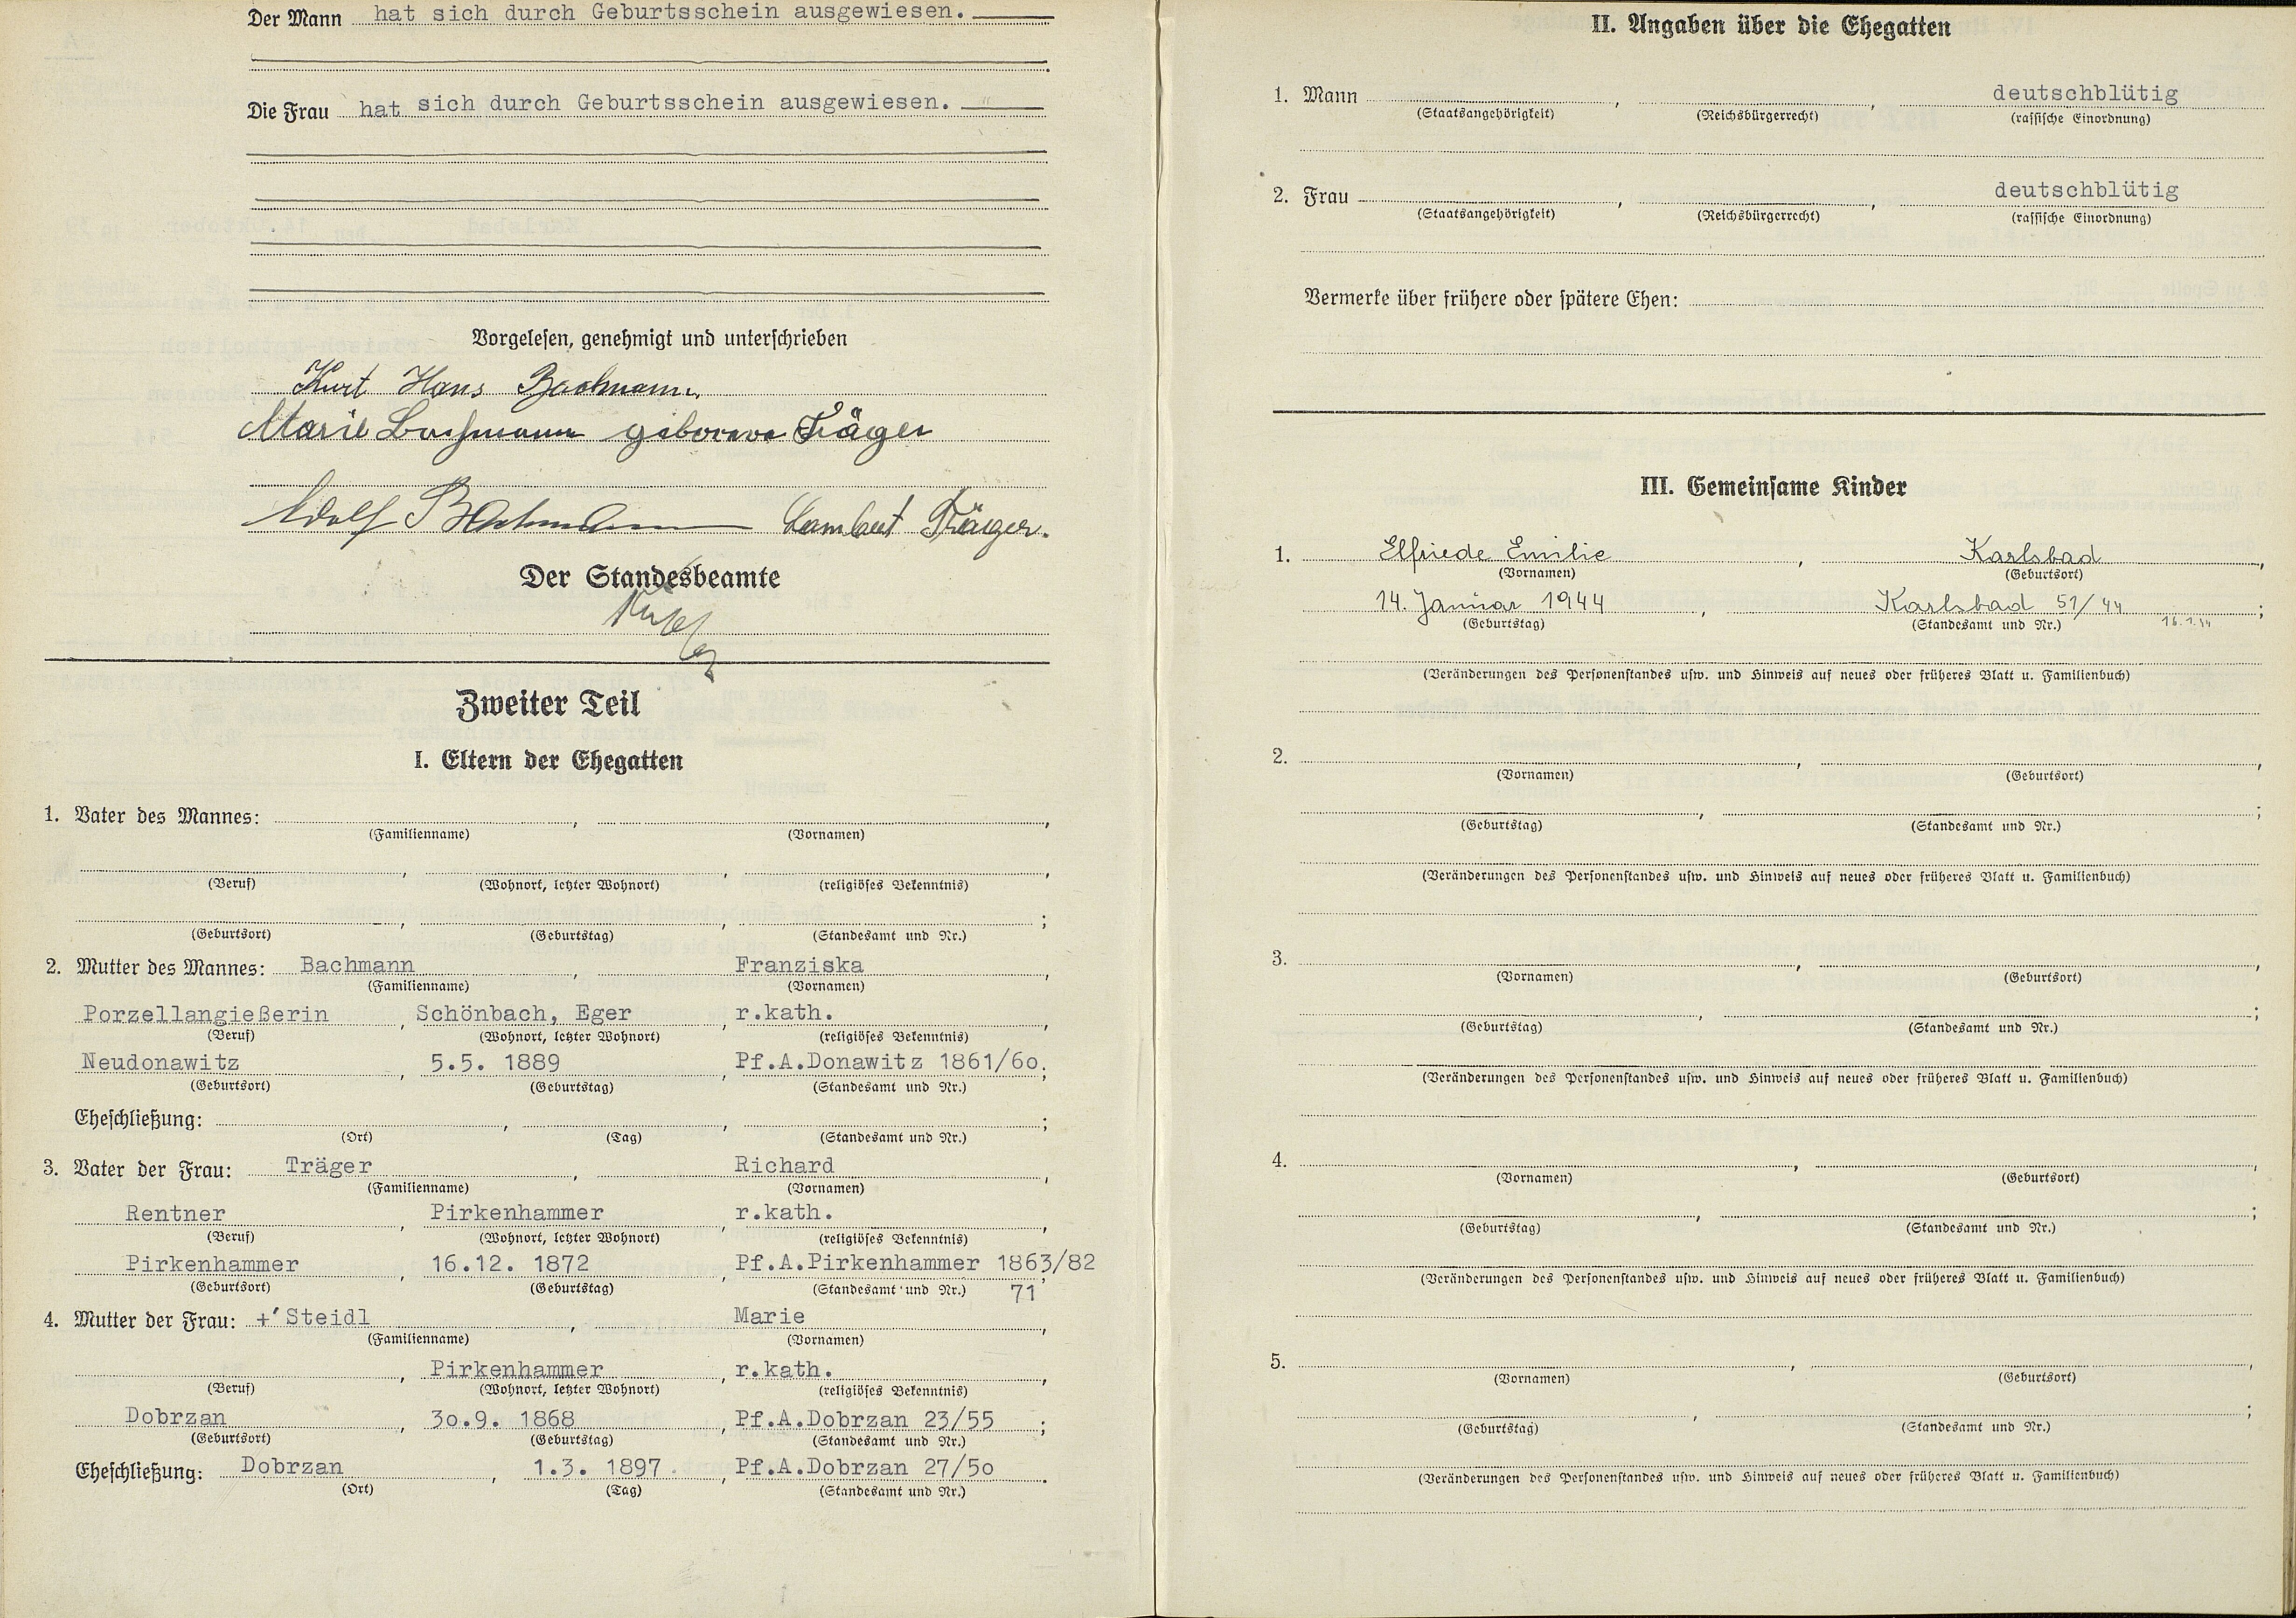 Der Mann hat sich durch Geburtsschein ausgewiesen.
Die Frau hat sich durch Geburtsschein ausgewiesen.
Vorgelesen, genehmigt und unterschrieben
Kurt Hans Bachmann
Marie Bachmann geborene Träger
Adolf Bachmann Lambert Träger.
Der Standesbeamte
Zweiter Teil
I. Eltern der Ehegatten
1. Vater des Mannes: , ,
(Familienname) (Vornamen)
, , ,
(Beruf) (Wohnort, letzter Wohnort) (religiöses Bekenntnis)
, , ;
(Geburtsort) (Geburtstag) (Standesamt und Nr.)
2. Mutter des Mannes: Bachmann , Franziska ,
(Familienname) (Vornamen)
Porzellangießerin , Schönbach, Eger , r.kath. ,
(Beruf) (Wohnort, letzter Wohnort) (religiöses Bekenntnis)
Neudonawitz , 5.5. 1889 , Pf.A.Donawitz 1861/60;
(Geburtsort) (Geburtstag) (Standesamt und Nr.)
Eheschließung: , , ;
(Ort) (Tag) (Standesamt und Nr.)
3. Vater der Frau: Träger , Richard ,
(Familienname) (Vornamen)
Rentner , Pirkenhammer , r.kath. ,
(Beruf) (Wohnort, letzter Wohnort) (religiöses Bekenntnis)
Pirkenhammer , 16.12. 1872 , Pf.A.Pirkenhammer 1863/82;
(Geburtsort) (Geburtstag) (Standesamt und Nr.) 71
4. Mutter der Frau: +'Steidl , Marie ,
(Familienname) (Vornamen)
, Pirkenhammer , r.kath. ,
(Beruf) (Wohnort, letzter Wohnort) (religiöses Bekenntnis)
Dobrzan , 30.9. 1868 , Pf.A.Dobrzan 23/55 ;
(Geburtsort) (Geburtstag) (Standesamt und Nr.)
Eheschließung: Dobrzan , 1.3. 1897 , Pf.A.Dobrzan 27/50 .
(Ort) (Tag) (Standesamt und Nr.)
II. Angaben über die Ehegatten
1. Mann , , deutschblütig
(Staatsangehörigkeit) (Reichsbürgerrecht) (rassische Einordnung)
2. Frau , , deutschblütig
(Staatsangehörigkeit) (Reichsbürgerrecht) (rassische Einordnung)
Vermerke über frühere oder spätere Ehen:
III. Gemeinsame Kinder
1. Elfriede Emilie , Karlsbad ,
(Vornamen) (Geburtsort)
14. Januar 1944 , Karlsbad 51/44 ;
(Geburtstag) (Standesamt und Nr.) 16.1.44
(Veränderungen des Personenstandes usw. und Hinweis auf neues oder früheres Blatt u. Familienbuch)
2. , ,
(Vornamen) (Geburtsort)
, ;
(Geburtstag) (Standesamt und Nr.)
(Veränderungen des Personenstandes usw. und Hinweis auf neues oder früheres Blatt u. Familienbuch)
3. , ,
(Vornamen) (Geburtsort)
, ;
(Geburtstag) (Standesamt und Nr.)
(Veränderungen des Personenstandes usw. und Hinweis auf neues oder früheres Blatt u. Familienbuch)
4. , ,
(Vornamen) (Geburtsort)
, ;
(Geburtstag) (Standesamt und Nr.)
(Veränderungen des Personenstandes usw. und Hinweis auf neues oder früheres Blatt u. Familienbuch)
5. , ,
(Vornamen) (Geburtsort)
, ;
(Geburtstag) (Standesamt und Nr.)
(Veränderungen des Personenstandes usw. und Hinweis auf neues oder früheres Blatt u. Familienbuch)